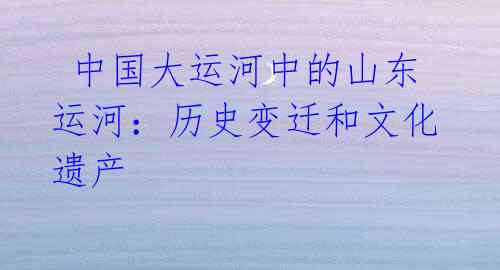 中国大运河中的山东
运河：历史变迁和文化
遗产